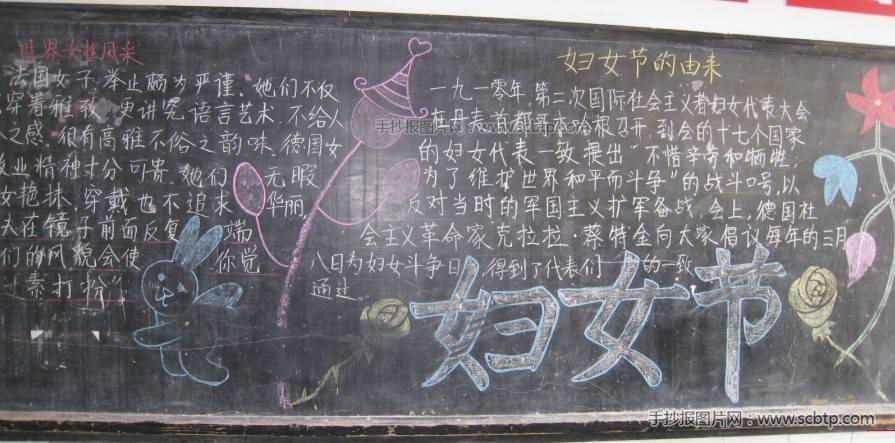 世界女性风采
法国女子举止颇为严谨。她们不仅
穿着雅致,更讲究语言艺术,不给人
之感,很有高雅不俗之韵味。德国女
业精神十分可贵。她们 无暇
艳抹、穿戴也不追求 华丽,
在镜子前面反复 端
们的风貌会使 你觉
素打粉"
妇女节的由来
一九一零年,第二次国际社会主义者妇女代表大会
在丹麦首都哥本哈根召开,到会的十七个国家
的妇女代表一致提出"不惜辛劳和牺牲,
为了维护世界和平而斗争"的战斗口号,以
反对当时的军国主义扩军备战。会上,德国社
会主义革命家克拉拉·蔡特金向大家倡议每年的三月
八日为妇女斗争日,得到了代表们 的一致
通过。
妇女节
手抄报图片网:www.scbtp.com
手抄报图片网:www.scbtp.com